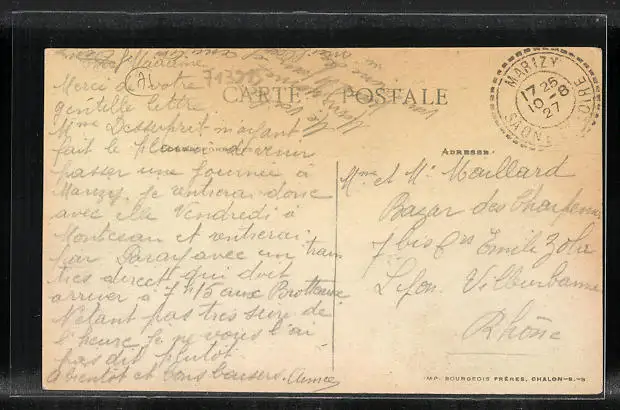 Chère Madame
Merci de votre
gentille lettre
Mme Dessuprêt m'ayant
fait le plaisir de venir
passer une journée à
Marizy. Je rentrerai donc
avec elle Vendredi à
Montceau et rentrerai
par Paray avec un train
très direct qui doit
arriver à 7h15 aux Brotteaux
N'étant pas très sûre de
l'heure je ne vous l'ai
pas dit plutôt
à bientôt et bons baisers. Aimée
71
713215
CARTE POSTALE
CORRESPONDANCE
ADRESSE
Mme et Mr Maillard
Bazar des Charpennes
7 bis Crs Emile Zola
Lyon Villeurbanne
Rhône
MARIZY
17 25
10-8
27
SAONE
LOIRE
IMP. BOURGEOIS FRÈRES, CHALON-S.-S